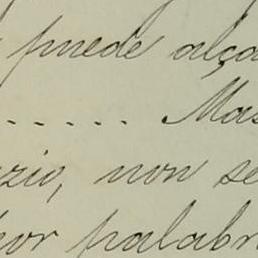 puede alça
..... Mas
zio, non se
por palabr